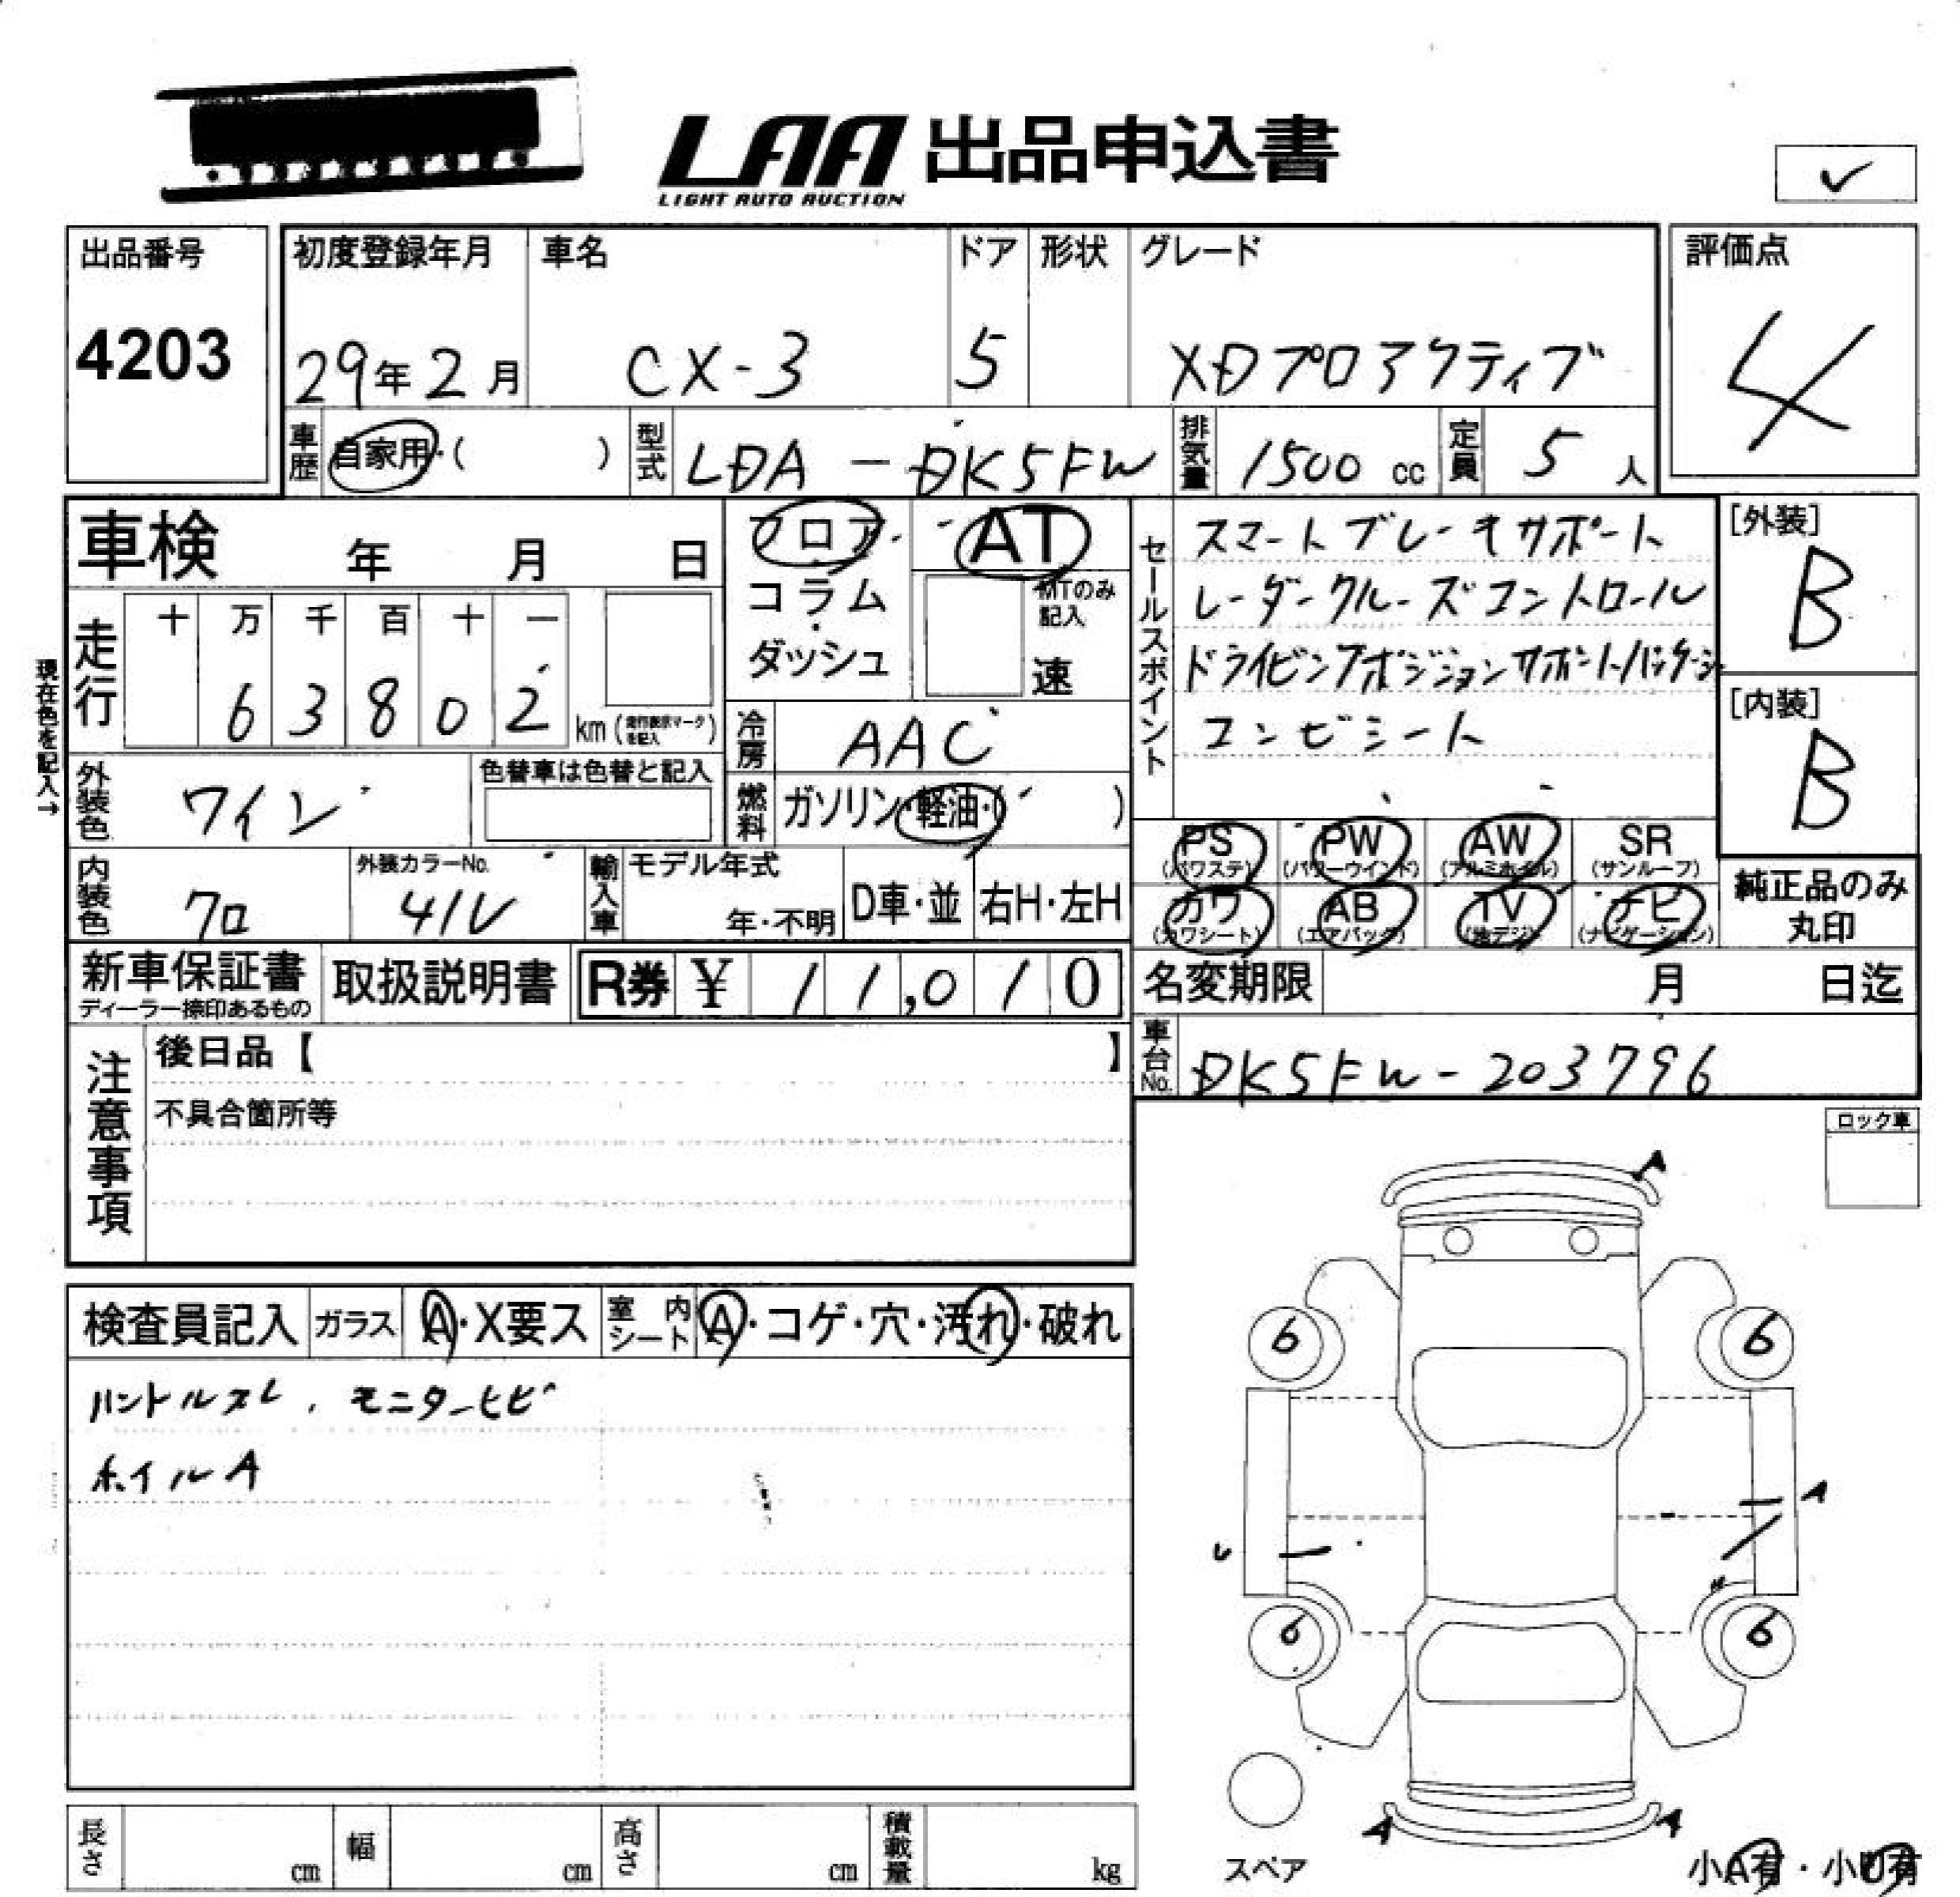 LAA 出品申込書
LIGHT AUTO AUCTION
出品番号
4203
初度登録年月 車名 ドア 形状 グレード
29年2月 CX-3 5 XDプロアクティブ
評価点
4
車歴 自家用・( ) 型式 LDA-DK5FW 排気量 1500 cc 定員 5 人
車検 年 月 日
フロア・コラム・ダッシュ
AT
MTのみ記入
速
セールスポイント
スマートブレーキサポート
レーダークルーズコントロール
ドライビングポジションサポートパッケージ
コンビシート
[外装]
B
[内装]
B
現在色を記入→
走行 十 万 千 百 十 一
6 3 8 0 2 km (走行表示マークを記入)
冷房 AAC
燃料 ガソリン・軽油・( )
外装色 ワイン 色替車は色替と記入
内装色 クロ 外装カラーNo. 41V 輸入車 モデル年式 年・不明 D車・並 右H・左H
PS (パワステ) PW (パワーウインド) AW (アルミホイル) SR (サンルーフ)
カワ (カワシート) AB (エアバック) TV (地デジ) ナビ (ナビゲーション)
純正品のみ丸印
新車保証書 ディーラー捺印あるもの 取扱説明書 R券 ¥ 11,010
名変期限 月 日迄
車台No. DK5FW-203796
注意事項
後日品【 】
不具合箇所等
ロック車
検査員記入 ガラス A・X要ス 室内シート A・コゲ・穴・汚れ・破れ
ハンドルスレ、モニターヒビ
ホイルA
A
6 6
A
U
6 6
A A
スペア
小A有・小U有
長さ cm 幅 cm 高さ cm 積載量 kg